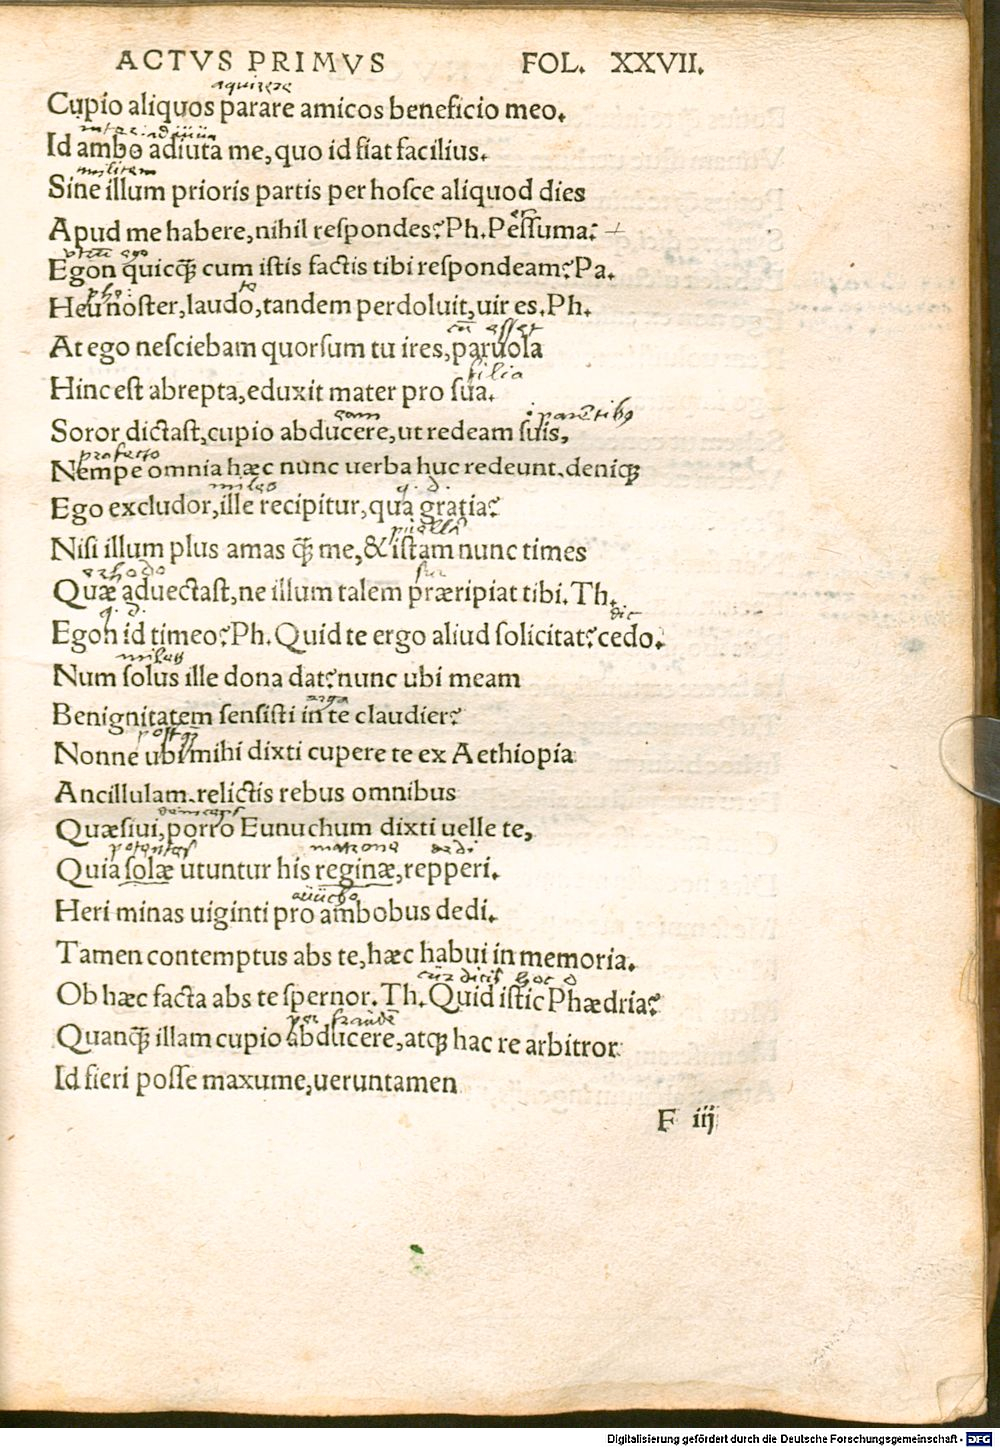 ACTVS PRIMVS FOL. XXVII.
aquirere
Cupio aliquos parare amicos beneficio meo.
Id ambo adiuta me, quo id fiat facilius.
militem
Sine illum prioris partis per hosce aliquod dies
Apud me habere, nihil respondes? Ph. Pessuma? +
ego
Egon quicq̃ cum istis factis tibi respondeam? Pa.
Heu noster, laudo, tandem perdoluit, uir es. Ph.
esset
At ego nesciebam quorsum tu ires, paruola
filia
Hinc est abrepta, eduxit mater pro sua.
eam
Soror dictast, cupio abducere, ut redeam suis,
profecto
Nempe omnia hæc nunc uerba huc redeunt. deniqꝫ
miles q. d.
Ego excludor, ille recipitur, qua gratia?
puellã
Nisi illum plus amas q̃ me, & istam nunc times
Quæ aduectast, ne illum talem præripiat tibi. Th.
q. d. dic
Egon id timeo? Ph. Quid te ergo aliud solicitat? cedo.
miles
Num solus ille dona dat? nunc ubi meam
erga
Benignitatem sensisti in te claudier?
postq̃
Nonne ubi mihi dixti cupere te ex Aethiopia
Ancillulam. relictis rebus omnibus
Quæsiui, porro Eunuchum dixti uelle te,
potentes matrone
Quia solæ utuntur his reginæ, repperi.
Heri minas uiginti pro ambobus dedi.
Tamen contemptus abs te, hæc habui in memoria.
hoc o
Ob hæc facta abs te spernor. Th. Quid istic Phædria?
per fraudē
Quanq̃ illam cupio abducere, atqꝫ hac re arbitror
Id fieri posse maxume, ueruntamen
F iij
Digitalisierung gefördert durch die Deutsche Forschungsgemeinschaft - DFG